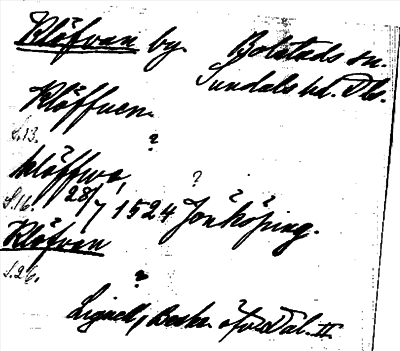 Klöfvan by. Bolstads sn.
Sundals hd. Dls.
Klöffuen.
S.13. ?
klöffwa, ?
S.16. 28/7 1524 Jönköping.
Klöfvan
S.26. ?
Lignell, Beskr. öfver Dal. II.